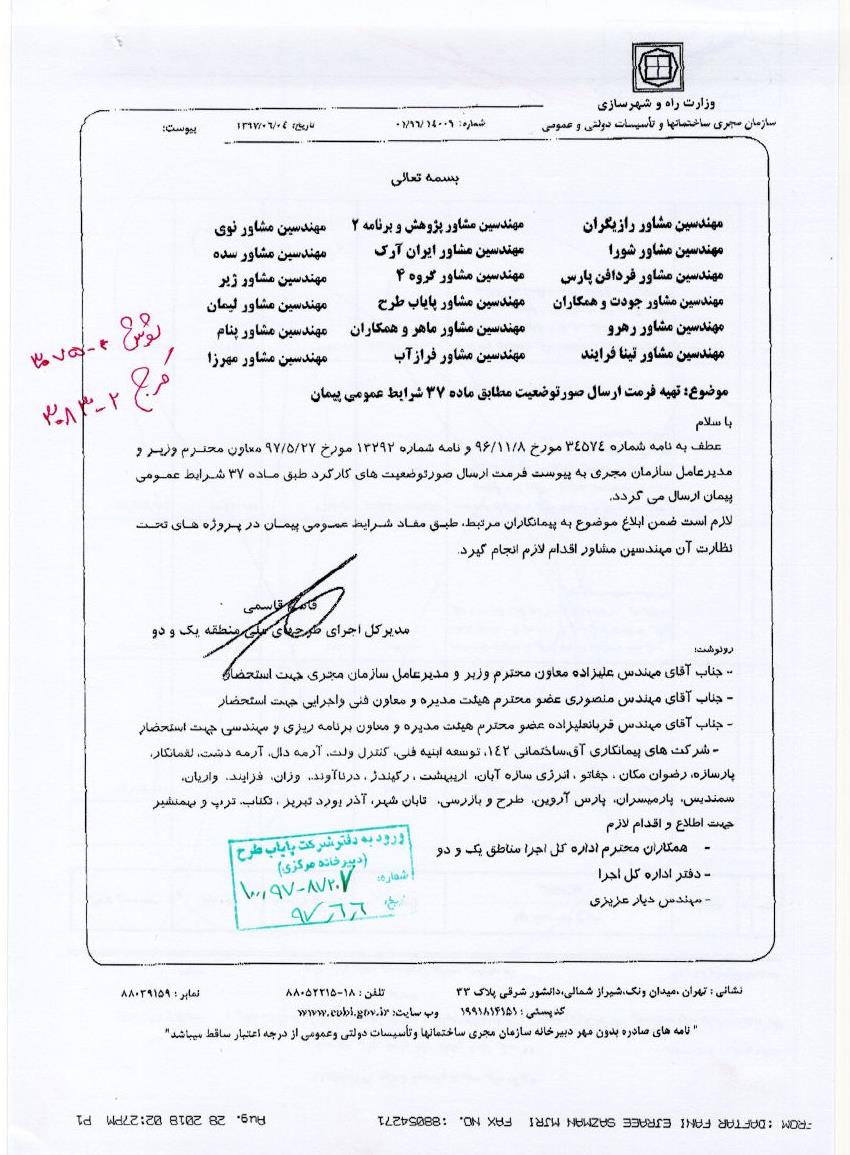 وزارت راه و شهرسازی
سازمان مجری ساختمانها و تأسیسات دولتی و عمومی
شماره: ۰۱/۹۶/۱۴۰۰۹
تاریخ: ۱۳۹۷/۰۶/۰۴
پیوست:
بسمه تعالی
مهندسین مشاور رازیگران مهندسین مشاور پژوهش و برنامه ۲ مهندسین مشاور نوی
مهندسین مشاور شورا مهندسین مشاور ایران آرک مهندسین مشاور سده
مهندسین مشاور فردافن پارس مهندسین مشاور گروه ۴ مهندسین مشاور ژیر
مهندسین مشاور جودت و همکاران مهندسین مشاور پایاب طرح مهندسین مشاور لیمان
مهندسین مشاور رهرو مهندسین مشاور ماهر و همکاران مهندسین مشاور پنام
مهندسین مشاور تینا فرایند مهندسین مشاور فرازآب مهندسین مشاور مهرزا
کرج ۲-۳۰۸۳
موضوع: تهیه فرمت ارسال صورتوضعیت مطابق ماده ۳۷ شرایط عمومی پیمان
با سلام
عطف به نامه شماره ۳۴۵۷۴ مورخ ۹۶/۱۱/۸ و نامه شماره ۱۳۲۹۲ مورخ ۹۷/۵/۲۷ معاون محترم وزیر و
مدیرعامل سازمان مجری به پیوست فرمت ارسال صورتوضعیت های کارکرد طبق ماده ۳۷ شرایط عمومی
پیمان ارسال می گردد.
لازم است ضمن ابلاغ موضوع به پیمانکاران مرتبط، طبق مفاد شرایط عمومی پیمان در پروژه های تحت
نظارت آن مهندسین مشاور اقدام لازم انجام گیرد.
قاسمی
مدیرکل اجرای طرحهای ملی منطقه یک و دو
رونوشت:
- جناب آقای مهندس علیزاده معاون محترم وزیر و مدیرعامل سازمان مجری جهت استحضار
- جناب آقای مهندس منصوری عضو محترم هیئت مدیره و معاون فنی واجرایی جهت استحضار
- جناب آقای مهندس قربانعلیزاده عضو محترم هیئت مدیره و معاون برنامه ریزی و مهندسی جهت استحضار
- شرکت های پیمانکاری آق،ساختمانی ۱۴۲، توسعه ابنیه فنی، کنترل ولت، آرمه دال، آرمه دشت، لقمانکار،
پارسازه، رضوان مکان ، جغاتو ، انرژی سازه آبان، اریبهشت ، رکیندژ ، درناآوند، وزان، فرایند، واریان،
سمندیس، پارمیسران، پارس آروین، طرح و بازرسی، تابان شهر، آذر یورد تبریز ، تکتاب، ترپ و بهمنشیر
جهت اطلاع و اقدام لازم
- همکاران محترم اداره کل اجرا مناطق یک و دو
- دفتر اداره کل اجرا
- مهندس دیار عزیزی
ورود به دفتر شرکت پایاب طرح
(دبیرخانه مرکزی)
شماره: ۱۰۰،۹۷-۸۷۲۰۷
تاریخ: ۹۷،۶،۶
نشانی : تهران ،میدان ونک،شیراز شمالی،دانشور شرقی پلاک ۳۳ تلفن : ۱۸-۸۸۰۵۲۲۱۵ نمابر : ۸۸۰۳۹۱۵۹
کدپستی : ۱۹۹۱۸۱۴۱۵۱ وب سایت: www.cobi.gov.ir
" نامه های صادره بدون مهر دبیرخانه سازمان مجری ساختمانها وتأسیسات دولتی وعمومی از درجه اعتبار ساقط میباشد"
FROM :DAFTAR FANI EJRAEE SAZMAN MJRI FAX NO. :88054271 Aug. 28 2018 02:27PM P1